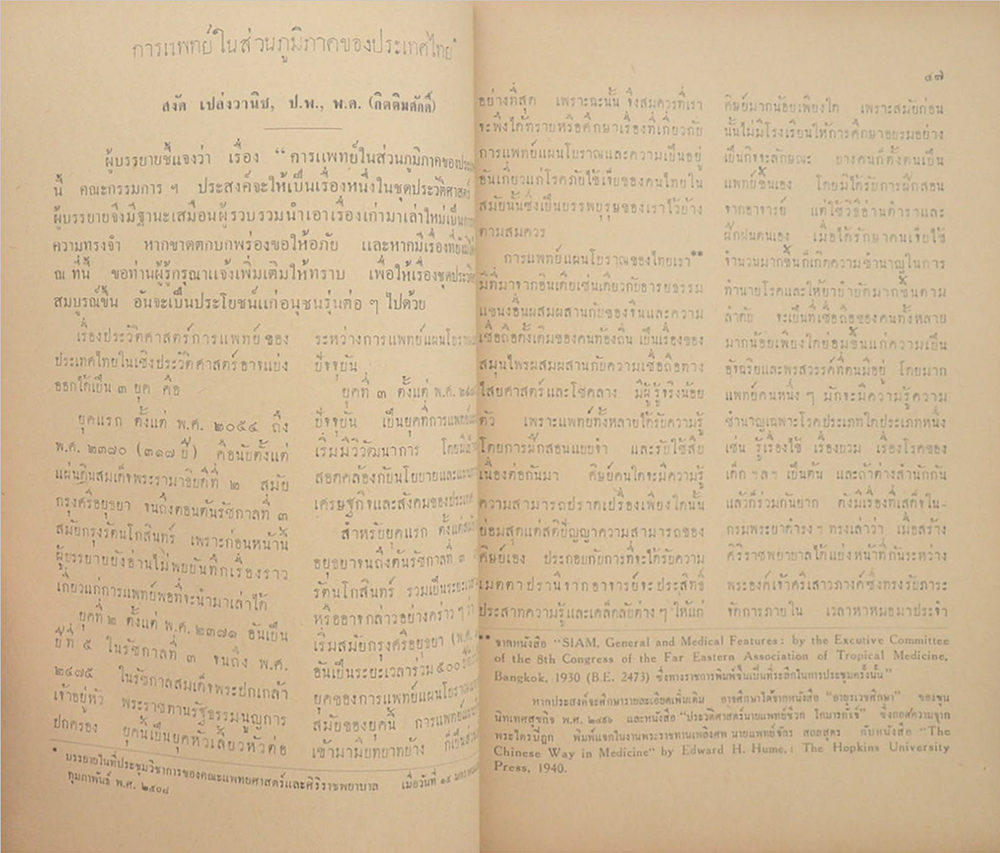 การแพทย์ในส่วนภูมิภาคของประเทศไทย*
สงัด เปล่งวานิช, ป.พ., พ.ด. (กิตติมศักดิ์)
ผู้บรรยายชี้แจงว่า เรื่อง “การแพทย์ในส่วนภูมิภาคของประเทศ
นี้ คณะกรรมการ ฯ ประสงค์จะให้เป็นเรื่องหนึ่งในชุดประวัติศาสตร์
ผู้บรรยายจึงมีฐานะเสมือนผู้รวบรวมนำเอาเรื่องเก่ามาเล่าใหม่เป็นการ
ความทรงจำ หากขาดตกบกพร่องขอให้อภัย และหากมีเรื่องที่
ณ ที่นี้ ขอท่านผู้รู้กรุณาแจ้งเพิ่มเติมให้ทราบ เพื่อให้เรื่องชุดประวัติ
สมบูรณ์ขึ้น อันจะเป็นประโยชน์แก่อนุชนรุ่นต่อ ๆ ไปด้วย
เรื่องประวัติศาสตร์การแพทย์ของ
ประเทศไทยในเชิงประวัติศาสตร์อาจแบ่ง
ออกได้เป็น ๓ ยุค คือ
ยุคแรก ตั้งแต่ พ.ศ. ๒๐๕๔ ถึง
พ.ศ. ๒๓๗๐ (๓๑๗ ปี) คือนับตั้งแต่
แผ่นดินสมเด็จพระรามาธิบดีที่ ๒ สมัย
กรุงศรีอยุธยา จนถึงตอนต้นรัชกาลที่ ๓
สมัยกรุงรัตนโกสินทร์ เพราะก่อนหน้านี้
ผู้บรรยายยังอ่านไม่พบบันทึกเรื่องราว
เกี่ยวแก่การแพทย์พอที่จะนำมาเล่าได้
ยุคที่ ๒ ตั้งแต่ พ.ศ. ๒๓๗๑ อันเป็น
ปีที่ ๕ ในรัชกาลที่ ๓ จนถึง พ.ศ.
๒๔๗๕ ในรัชกาลสมเด็จพระปกเกล้า
เจ้าอยู่หัว พระราชทานรัฐธรรมนูญการ
ปกครอง ยุคนี้เป็นยุคหัวเลี้ยวหัวต่อ
ระหว่างการแพทย์แผนโบราณ
ปัจจุบัน
ยุคที่ ๓ ตั้งแต่ พ.ศ.
ปัจจุบัน เป็นยุคที่การแพทย์
เริ่มมีวิวัฒนาการ โดยมี
สอดคล้องกับนโยบายและ
เศรษฐกิจและสังคมของประเทศ
สำหรับยุคแรก ตั้งแต่สมัย
อยุธยาจนถึงต้นรัชกาลที่ ๓
รัตนโกสินทร์ รวมเป็นระยะเวลา
หรืออาจกล่าวอย่างคร่าว ๆ ว่า
เริ่มสมัยกรุงศรีอยุธยา (พ.ศ.
อันเป็นระยะเวลาร่วม ๕๐๐ ปี
ยุคของการแพทย์แผนโบราณ
สมัยของยุคนี้ การแพทย์
เข้ามามีบทบาทบ้าง ก็เป็นส่วน
* บรรยายในที่ประชุมวิชาการของคณะแพทยศาสตร์และศิริราชพยาบาล เมื่อวันที่ ๑๕
กุมภาพันธ์ พ.ศ. ๒๕๐๘
๔๗
อย่างที่สุด เพราะฉะนั้น จึงสมควรที่เรา
จะพึงได้ทราบหรือศึกษาเรื่องที่เกี่ยวกับ
การแพทย์แผนโบราณและความเป็นอยู่
อันเกี่ยวแก่โรคภัยไข้เจ็บของคนไทยใน
สมัยนั้นซึ่งเป็นบรรพบุรุษของเราไว้บ้าง
ตามสมควร
การแพทย์แผนโบราณของไทยเรา**
มีที่มาจากอินเดียเช่นเดียวกับอารยธรรม
แขนงอื่นผสมผสานกับของจีนและความ
เชื่อถือดั้งเดิมของคนท้องถิ่น เป็นเรื่องของ
สมุนไพรผสมผสานกับความเชื่อถือทาง
ไสยศาสตร์และโชคลาง มีผู้รู้จริงน้อย
ตัว เพราะแพทย์ทั้งหลายได้รับความรู้
โดยการฝึกสอนแบบจำ และรับใช้สืบ
เนื่องต่อกันมา ศิษย์คนใดจะมีความรู้
ความสามารถปราดเปรื่องเพียงใดนั้น
ย่อมสุดแต่สติปัญญาความสามารถของ
ศิษย์เอง ประกอบกับการที่จะได้รับความ
เมตตาปรานีจากอาจารย์จะประสิทธิ์
ประสาทความรู้และเคล็ดลับต่าง ๆ ให้แก่
ศิษย์มากน้อยเพียงใด เพราะสมัยก่อน
นั้นไม่มีโรงเรียนให้การศึกษาอบรมอย่าง
เป็นกิจจะลักษณะ บางคนก็ตั้งตนเป็น
แพทย์ขึ้นเอง โดยมิได้รับการฝึกสอน
จากอาจารย์ แต่ใช้วิธีอ่านตำราและ
ฝึกฝนตนเอง เมื่อได้รักษาคนเจ็บไข้
จำนวนมากขึ้นก็เกิดความชำนาญในการ
ทำนายโรคและให้ยาบำบัดมากขึ้นตาม
ลำดับ จะเป็นที่เชื่อถือของคนทั้งหลาย
มากน้อยเพียงใดย่อมขึ้นแก่ความเป็น
อัจฉริยและพรสวรรค์ที่ตนมีอยู่ โดยมาก
แพทย์คนหนึ่ง ๆ มักจะมีความรู้ความ
ชำนาญเฉพาะโรคประเภทใดประเภทหนึ่ง
เช่น รู้เรื่องไข้ เรื่องบวม เรื่องโรคของ
เด็ก ฯลฯ เป็นต้น และถ้าต่างสำนักกัน
แล้วก็ร่วมกันยาก ดังมีเรื่องที่เสด็จใน-
กรมพระยาดำรง ฯ ทรงเล่าว่า เมื่อสร้าง
ศิริราชพยาบาลได้แบ่งหน้าที่กันระหว่าง
พระองค์เจ้าศรีเสาวภางค์ซึ่งทรงรับภาระ
จัดการภายใน เวลาหาหมอมาประจำ
** จากหนังสือ “SIAM, General and Medical Features: by the Excutive Committee
of the 8th Congress of the Far Eastern Association of Tropical Medicine,
Bangkok, 1930 (B.E. 2473) ซึ่งทางราชการพิมพ์ขึ้นเป็นที่ระลึกในการประชุมครั้งนั้น”
หากประสงค์จะศึกษารายละเอียดเพิ่มเติม อาจศึกษาได้จากหนังสือ “อายุรเวชศึกษา” ของขุน
นิทเทศสุขกิจ พ.ศ. ๒๔๕๖ และหนังสือ “ประวัติศาสตร์นายแพทย์ชีวก โกมารภัจจ์” ซึ่งถอดความจาก
พระไตรปิฎก พิมพ์แจกในงานพระราชทานเพลิงศพ นายแพทย์จักร สกลสูตร กับหนังสือ “The
Chinese Way in Medicine” by Edward H. Hume,: The Hopkins University
Press, 1940.